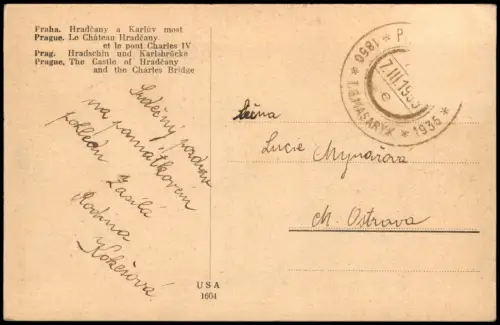 Praha. Hradčany a Karlův most
Prague. Le Château Hradčany
et le pont Charles IV
Prag. Hradschin und Karlsbrücke
Prague, The Castle of Hradčany
and the Charles Bridge
Srdečný pozdrav
na památkovém
pohledu
Zasílá
Rodina
Kokešová
USA
1604
1850 * P
7.III.19
e
T.G.MASARYK * 1935 *
slečna
Lucie Mynářová
M. Ostrava